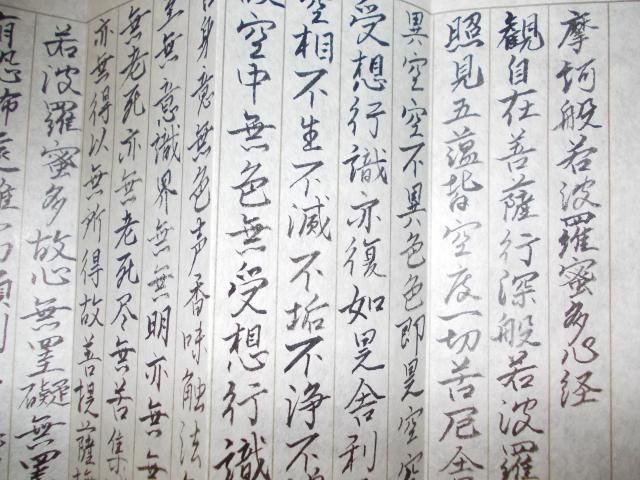 摩訶般若波羅蜜多心経
観自在菩薩行深般若波羅
照見五蘊皆空度一切苦厄舎
異空空不異色色即是空空
受想行識亦復如是舎利
空相不生不滅不垢不浄不
故空中無色無受想行識
舌身意無色声香味触法
至無意識界無無明亦無無
無老死亦無老死尽無苦集
亦無得以無所得故菩提薩埵
若波羅蜜多故心無罣礙無罣
有恐怖遠離